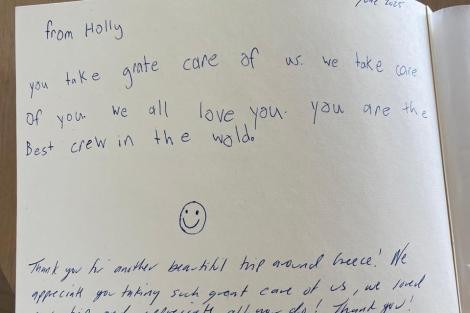 June 2025
from Holly
you take grate care of us. we take care
of you. we all love you. you are the
Best crew in the wold.
Thank you for another beautiful trip around Greece! We
appreciate you taking such great care of us, we loved
trip and appreciate all you do! Thank you!